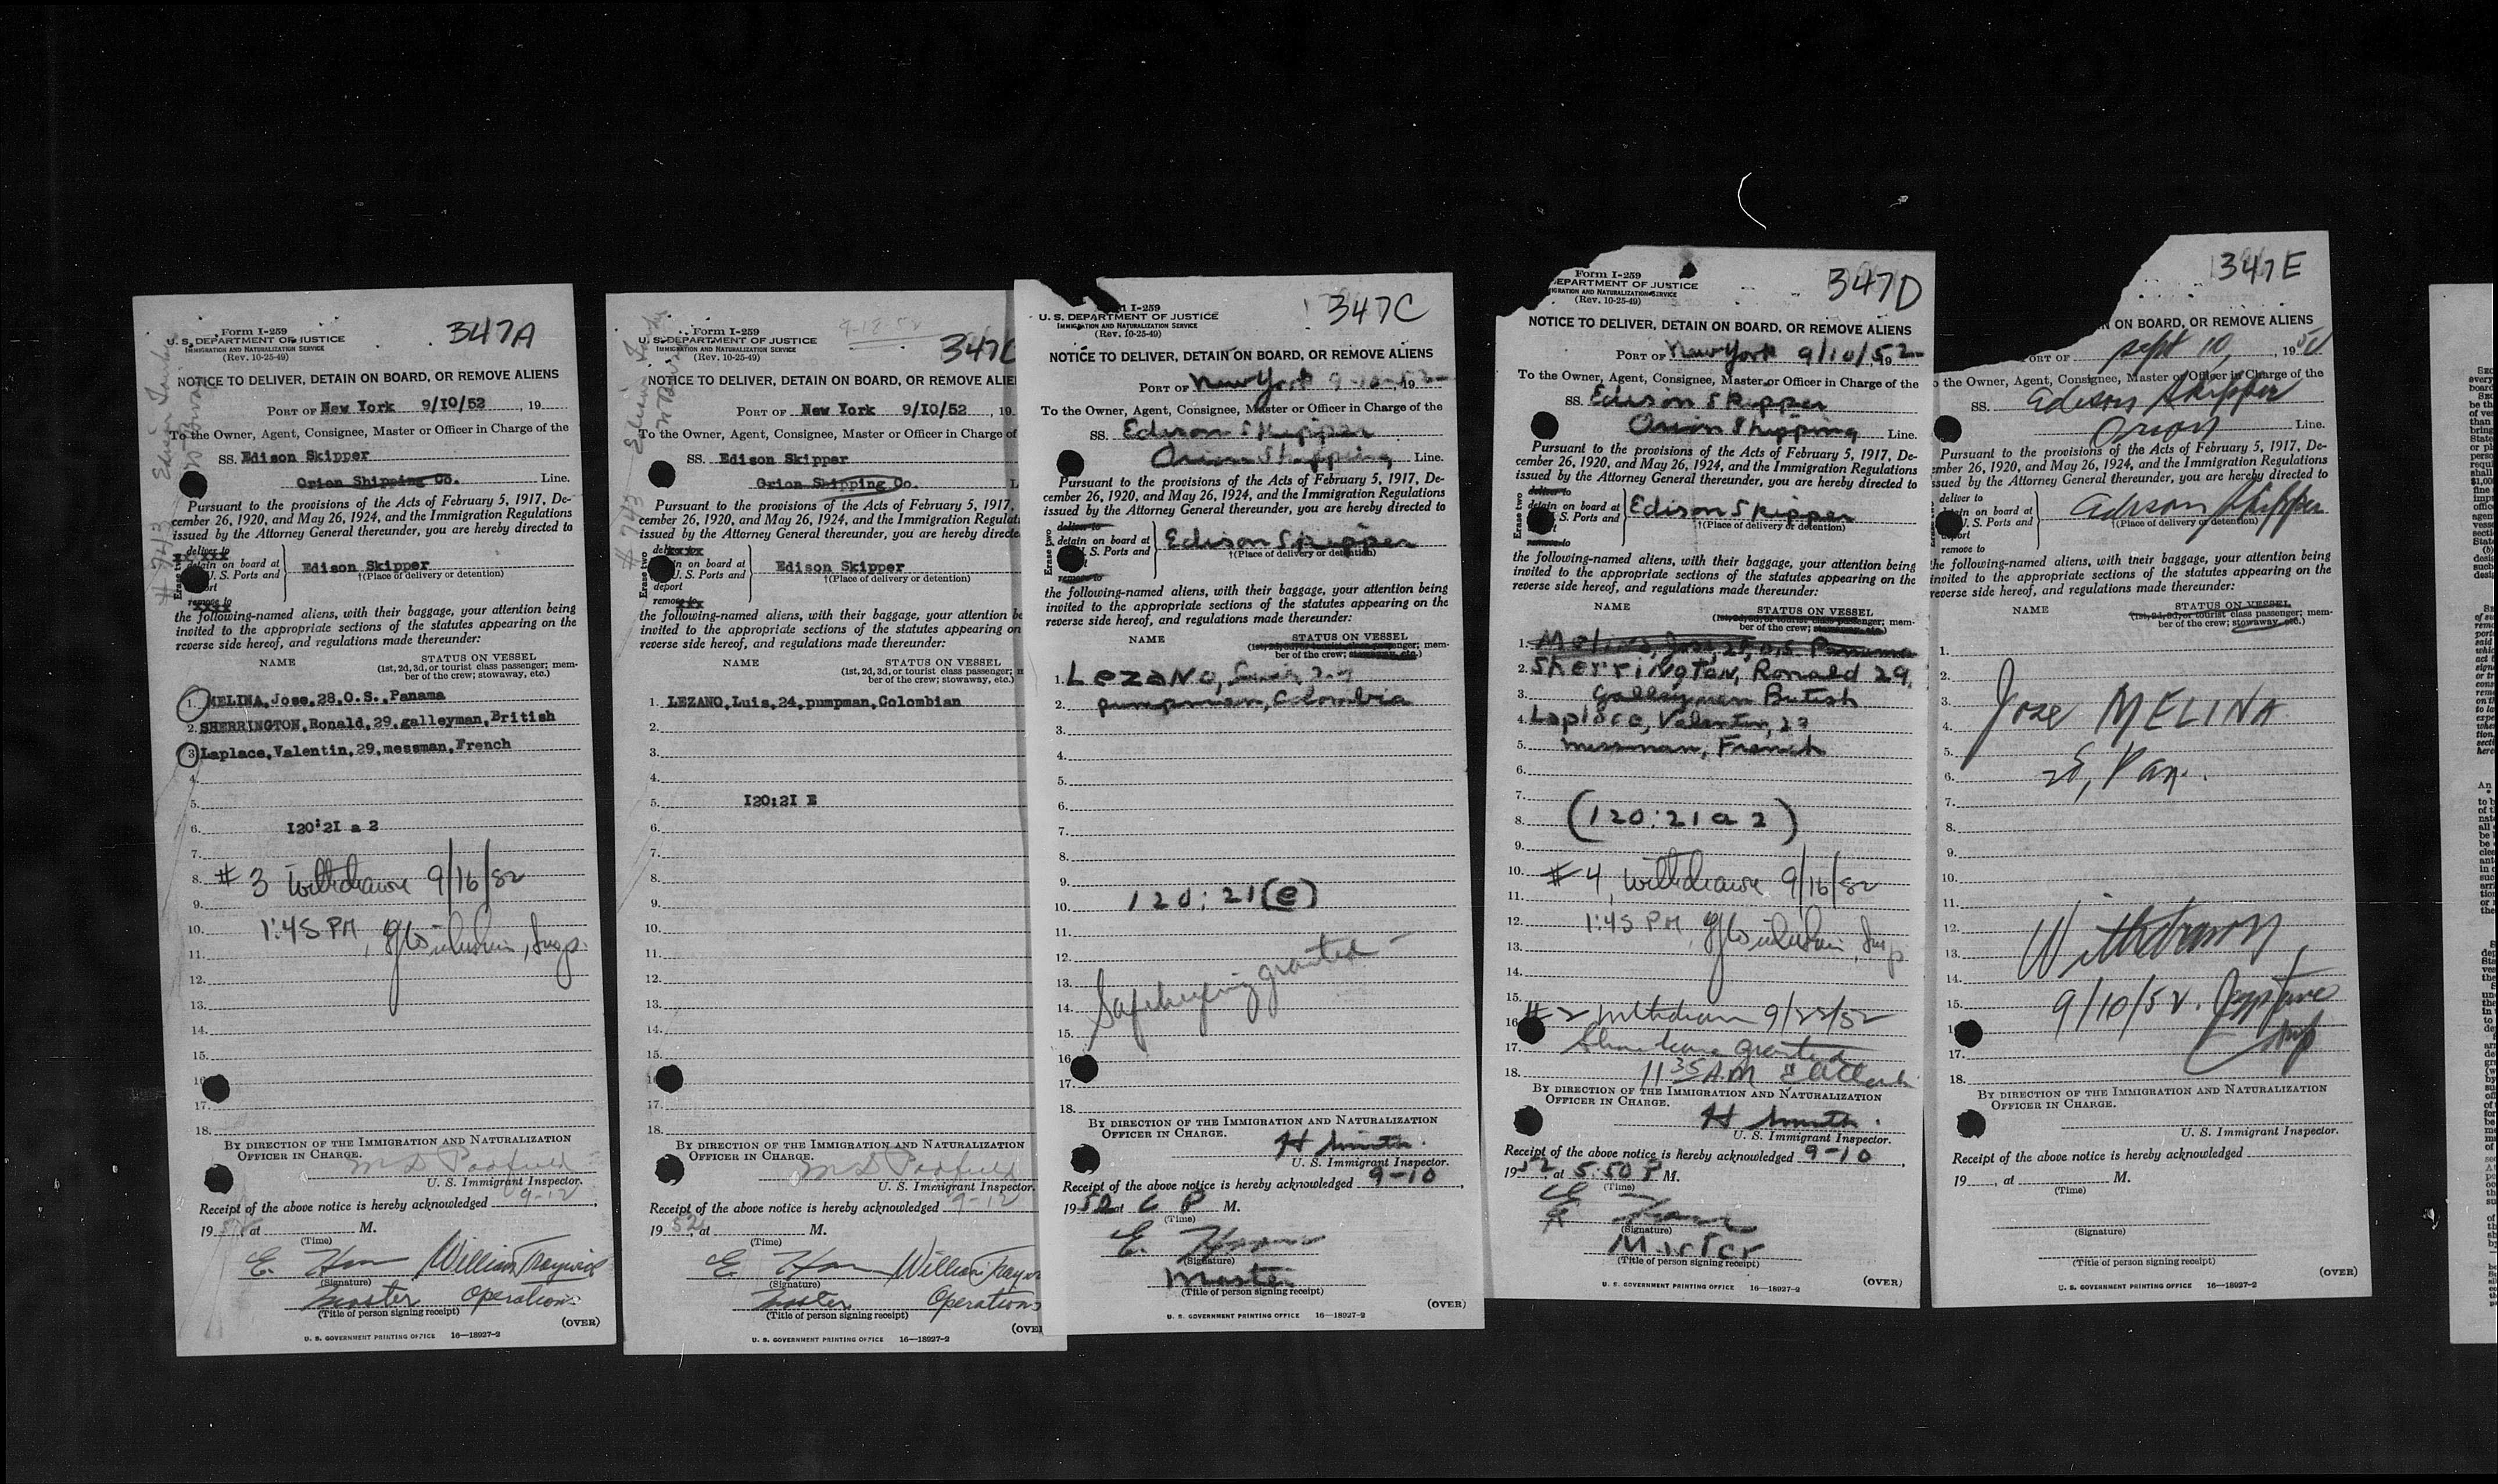 347A
Form I-259
U. S. DEPARTMENT OF JUSTICE
IMMIGRATION AND NATURALIZATION SERVICE
(Rev. 10-25-49)
NOTICE TO DELIVER, DETAIN ON BOARD, OR REMOVE ALIENS
PORT OF New York 9/10/52, 19
To the Owner, Agent, Consignee, Master or Officer in Charge of the
SS. Edison Skipper
Orion Shipping Co. Line.
Pursuant to the provisions of the Acts of February 5, 1917, De-
cember 26, 1920, and May 26, 1924, and the Immigration Regulations
issued by the Attorney General thereunder, you are hereby directed to
Erase two
deliver to
detain on board at
U. S. Ports and
remove to
Edison Skipper
†(Place of delivery or detention)
the following-named aliens, with their baggage, your attention being
invited to the appropriate sections of the statutes appearing on the
reverse side hereof, and regulations made thereunder:
NAME STATUS ON VESSEL
(1st, 2d, 3d, or tourist class passenger; mem-
ber of the crew; stowaway, etc.)
1. MELINA, Jose, 28, O.S., Panama
2. SHERRINGTON, Ronald, 29, galleyman, British
3 Laplace, Valentin, 29, messman, French
4.
5.
6. I20:2I a 2
7.
8. # 3 Withdrawn 9/16/52
9.
10. 1:45 PM, Insp.
11.
12.
13.
14.
15.
16
17.
18.
BY DIRECTION OF THE IMMIGRATION AND NATURALIZATION
OFFICER IN CHARGE.
U. S. Immigrant Inspector.
Receipt of the above notice is hereby acknowledged 9-12,
1952, at M.
(Time)
E. William
(Signature)
Master Operations
(Title of person signing receipt)
(OVER)
U. S. GOVERNMENT PRINTING OFFICE 16—18927-2
Form I-259
U. S. DEPARTMENT OF JUSTICE
IMMIGRATION AND NATURALIZATION SERVICE
(Rev. 10-25-49)
NOTICE TO DELIVER, DETAIN ON BOARD, OR REMOVE ALIE
PORT OF New York 9/10/52, 19
To the Owner, Agent, Consignee, Master or Officer in Charge of
SS. Edison Skipper
Orion Shipping Co. L
Pursuant to the provisions of the Acts of February 5, 1917,
cember 26, 1920, and May 26, 1924, and the Immigration Regulat
issued by the Attorney General thereunder, you are hereby directe
Erase two
in on board at
U. S. Ports and
deport
remove to
Edison Skipper
†(Place of delivery or detention)
the following-named aliens, with their baggage, your attention be
invited to the appropriate sections of the statutes appearing on
reverse side hereof, and regulations made thereunder:
NAME STATUS ON VESSEL
(1st, 2d, 3d, or tourist class passenger; m
ber of the crew; stowaway, etc.)
1. LEZANO, Luis, 24, pumpman, Colombian
2.
3.
4.
5. I20:2I E
6.
7.
8.
9.
10.
11.
12.
13.
14.
15.
16
17.
18.
BY DIRECTION OF THE IMMIGRATION AND NATURALIZATION
OFFICER IN CHARGE.
U. S. Immigrant Inspector.
Receipt of the above notice is hereby acknowledged 9-12
1952, at M.
(Time)
E William
(Signature)
Master Operations
(Title of person signing receipt)
(OVE
U. S. GOVERNMENT PRINTING OFFICE 16—18927-2
347C
I-259
U. S. DEPARTMENT OF JUSTICE
IMMIGRATION AND NATURALIZATION SERVICE
(Rev. 10-25-49)
NOTICE TO DELIVER, DETAIN ON BOARD, OR REMOVE ALIENS
PORT OF New York 9-10-, 1952
To the Owner, Agent, Consignee, Master or Officer in Charge of the
SS. Edison Skipper
Orion Shipping Line.
Pursuant to the provisions of the Acts of February 5, 1917, De-
cember 26, 1920, and May 26, 1924, and the Immigration Regulations
issued by the Attorney General thereunder, you are hereby directed to
Erase two
deliver to
detain on board at
U. S. Ports and
remove to
Edison Skipper
†(Place of delivery or detention)
the following-named aliens, with their baggage, your attention being
invited to the appropriate sections of the statutes appearing on the
reverse side hereof, and regulations made thereunder:
NAME STATUS ON VESSEL
(1st, 2d, 3d, or tourist class passenger; mem-
ber of the crew; stowaway, etc.)
1. LezaNo, Luis, 24
2. pumpman, Colombia
3.
4.
5.
6.
7.
8.
9.
10. 120:21(e)
11.
12.
13. Safekeeping granted
14.
15.
16
17.
18.
BY DIRECTION OF THE IMMIGRATION AND NATURALIZATION
OFFICER IN CHARGE.
H Smith.
U. S. Immigrant Inspector.
Receipt of the above notice is hereby acknowledged 9-10,
1952 at 6 P M.
(Time)
E.
(Signature)
Master
(Title of person signing receipt)
(OVER)
U. S. GOVERNMENT PRINTING OFFICE 16—18927-2
347D
Form I-259
EPARTMENT OF JUSTICE
IGRATION AND NATURALIZATION SERVICE
(Rev. 10-25-49)
NOTICE TO DELIVER, DETAIN ON BOARD, OR REMOVE ALIENS
PORT OF New York 9/10/, 1952
To the Owner, Agent, Consignee, Master or Officer in Charge of the
SS. Edison Skipper
Orion Shipping Line.
Pursuant to the provisions of the Acts of February 5, 1917, De-
cember 26, 1920, and May 26, 1924, and the Immigration Regulations
issued by the Attorney General thereunder, you are hereby directed to
Erase two
deliver to
detain on board at
S. Ports and
remove to
Edison Skipper
†(Place of delivery or detention)
the following-named aliens, with their baggage, your attention being
invited to the appropriate sections of the statutes appearing on the
reverse side hereof, and regulations made thereunder:
NAME STATUS ON VESSEL
(1st, 2d, 3d, or tourist class passenger; mem-
ber of the crew; stowaway, etc.)
1. Melina, Jose, 28, O.S. Panama
2. SherriNgtoN, Ronald 29,
3. galleyman British
4. Laplace, Valentin, 29
5. messman, French
6.
7.
8. (120:21 a 2)
9.
10. # 4, Withdrawn 9/16/52
11.
12. 1:45 PM, Insp
13.
14.
15.
16 # 2 Withdrawn 9/22/52
17. Shore leave granted
18. 11 35 AM
BY DIRECTION OF THE IMMIGRATION AND NATURALIZATION
OFFICER IN CHARGE.
H Smith.
U. S. Immigrant Inspector.
Receipt of the above notice is hereby acknowledged 9-10,
1952, at 5:50 P M.
(Time)
E
(Signature)
Master
(Title of person signing receipt)
(OVER)
U. S. GOVERNMENT PRINTING OFFICE 16—18927-2
347E
N ON BOARD, OR REMOVE ALIENS
ORT OF Sept 10, 1952
o the Owner, Agent, Consignee, Master or Officer in Charge of the
SS. Edison Skipper
Orion Line.
Pursuant to the provisions of the Acts of February 5, 1917, De-
ember 26, 1920, and May 26, 1924, and the Immigration Regulations
issued by the Attorney General thereunder, you are hereby directed to
deliver to
in on board at
U. S. Ports and
port
remove to
Edison Skipper
†(Place of delivery or detention)
he following-named aliens, with their baggage, your attention being
invited to the appropriate sections of the statutes appearing on the
reverse side hereof, and regulations made thereunder:
NAME STATUS ON VESSEL
(1st, 2d, 3d, or tourist class passenger; mem-
ber of the crew; stowaway, etc.)
1.
2.
3.
4. Jose MELINA
5.
6. 28, Pan.
7.
8.
9.
10.
11.
12.
13. Withdrawn
14.
15. 9/10/52. Insp
17.
18.
BY DIRECTION OF THE IMMIGRATION AND NATURALIZATION
OFFICER IN CHARGE.
U. S. Immigrant Inspector.
Receipt of the above notice is hereby acknowledged
19, at M.
(Time)
(Signature)
(Title of person signing receipt)
(OVER)
U. S. GOVERNMENT PRINTING OFFICE 16—18927-2